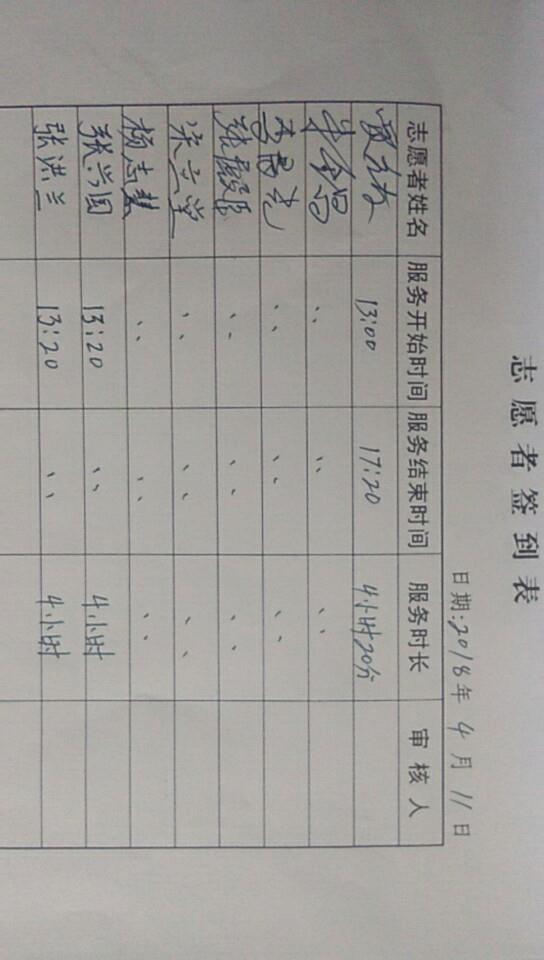 志愿者签到表
日期:2018年 4月 11日
志愿者姓名 服务开始时间 服务结束时间 服务时长 审核人
13:00 17:20 4小时20分
〃 〃 〃
〃 〃 〃
〃 〃 〃
宋兰堂 〃 〃 〃
杨志慧 〃 〃 〃
张兴国 13:20 〃 4小时
张洪兰 13:20 〃 4小时